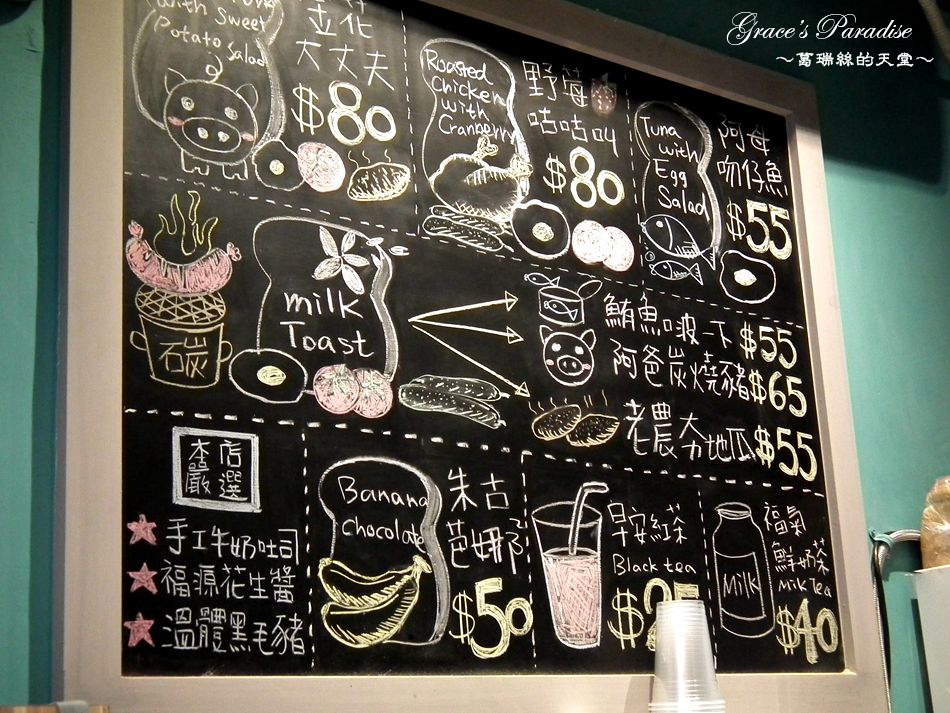 Grace's Paradise
～葛瑞絲的天堂～
with Sweet
Potato Salad
金花
大丈夫
$80
Roasted
Chicken
with
Cranberry
野莓
咕咕叫
$80
Tuna
with
Egg
Salad
阿母
吻仔魚
$55
石炭
milk
Toast
鮪魚啵一下 $55
阿爸炭燒豬 $65
老農夯地瓜 $55
本店
嚴選
手工牛奶吐司
福源花生醬
溫體黑毛豬
Banana
Chocolate
朱古
芭娜娜
$50
早安紅茶
Black tea
Milk
福氣
鮮奶茶
Milk Tea
$40